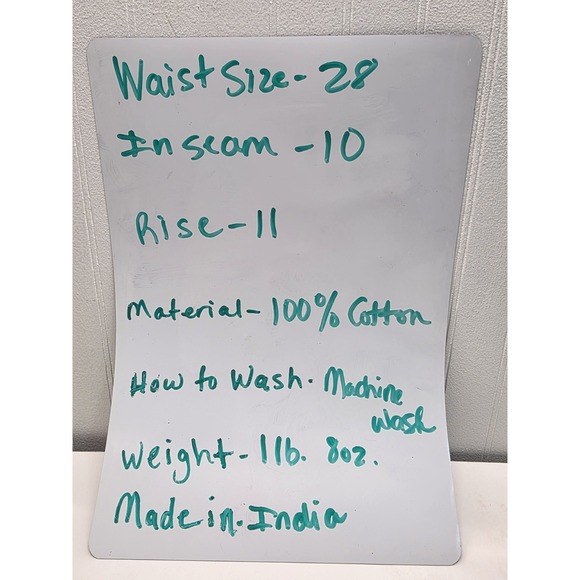 Waist Size - 28
Inseam - 10
Rise - 11
Material - 100% Cotton
How to Wash. Machine
Wash
Weight - 1lb. 8oz.
Made in. India